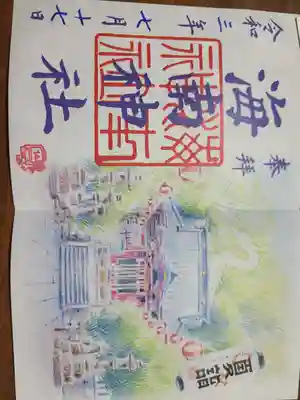 奉拝
海南神社
海南
神社
令和三年七月十七日
夏詣